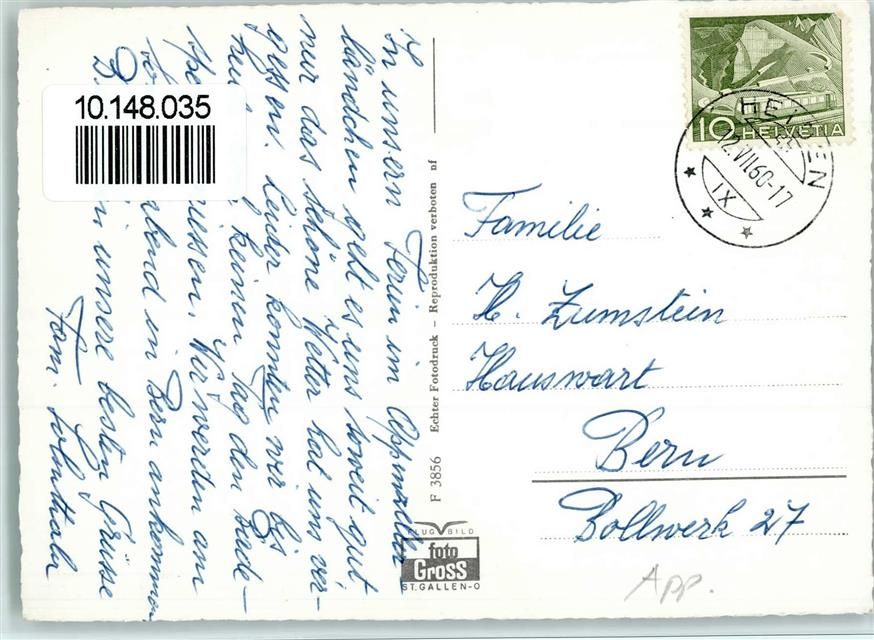 10.148.035
In unsern Ferien im Appenzeller
ländchen geht es uns soweit gut,
nur das schöne Wetter hat uns ver-
gessen. Leider konnten wir bis
keinen Tag den Bade-
Wir werden am
abend in Bern ankommen
unsere besten Grüsse
Fam.
F 3856 Echter Fotodruck – Reproduktion verboten nf
FLUGBILD
foto
Gross
ST. GALLEN-O
10 HELVETIA
HEIDEN
12.VII.60-17
IX
Familie
H. Zumstein
Hauswart
Bern
Bollwerk 27
App.